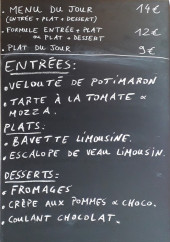 • MENU DU JOUR 14€
(ENTRÉE + PLAT + DESSERT)
• FORMULE ENTRÉE + PLAT 12€
ou PLAT + DESSERT
• PLAT DU JOUR 9€
ENTRÉES:
• VELOUTÉ DE POTIMARON
• TARTE À LA TOMATE &
MOZZA.
PLATS:
• BAVETTE LIMOUSINE.
• ESCALOPE DE VEAU LIMOUSIN.
DESSERTS:
• FROMAGES
• CRÊPE AUX POMMES & CHOCO.
• COULANT CHOCOLAT.